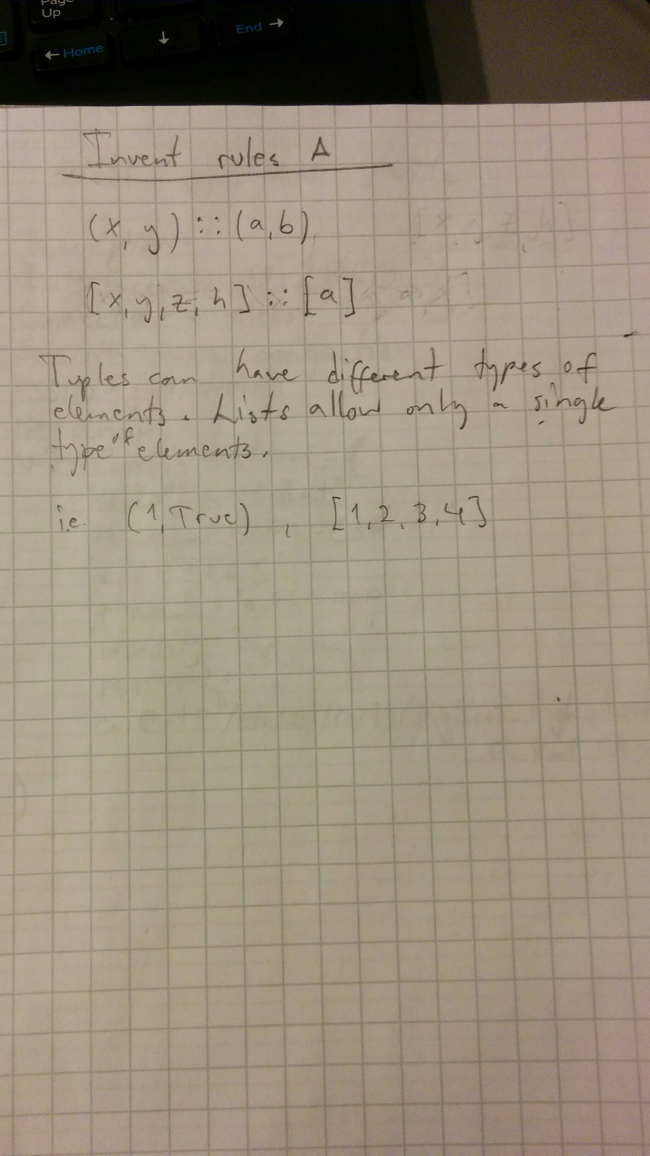 Page
Up
← Home
↓
End →
Invent rules A
(x, y) :: (a,b)
[x, y, z, h] :: [a]
Tuples can have different types of
elements. Lists allow only a single
type of elements.
ie (1, True) , [1, 2, 3, 4]